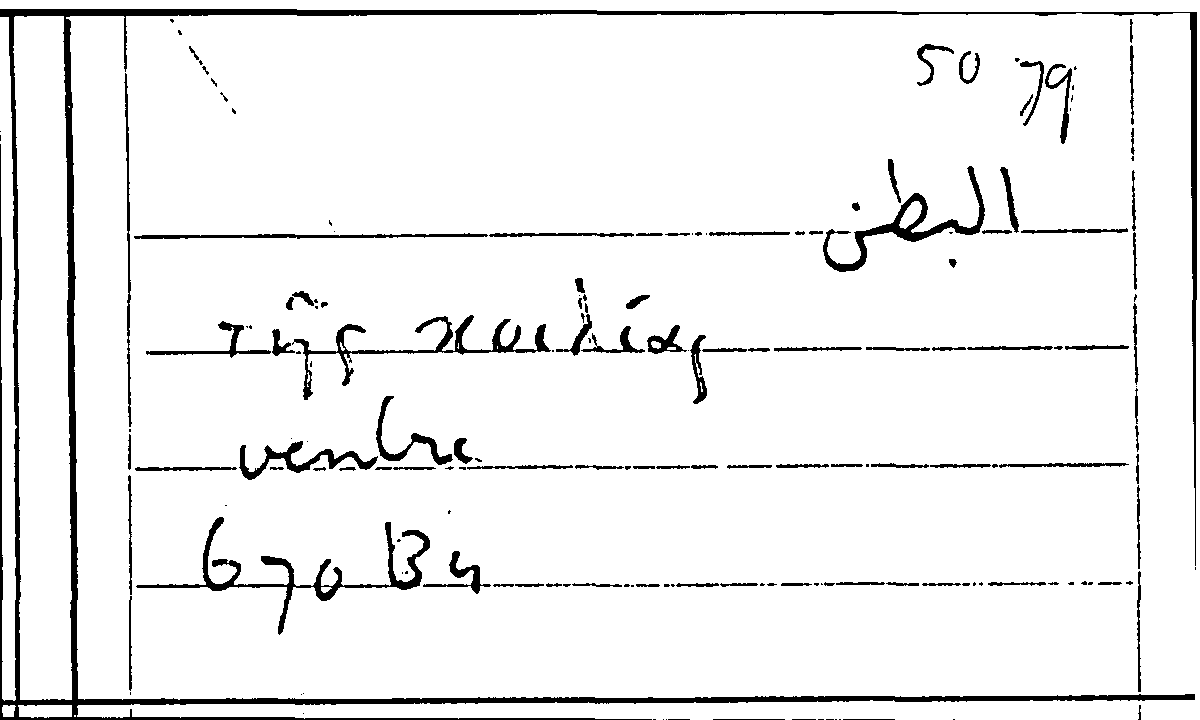 50 79
البطن
τῆς κοιλίας
ventre
670 B4